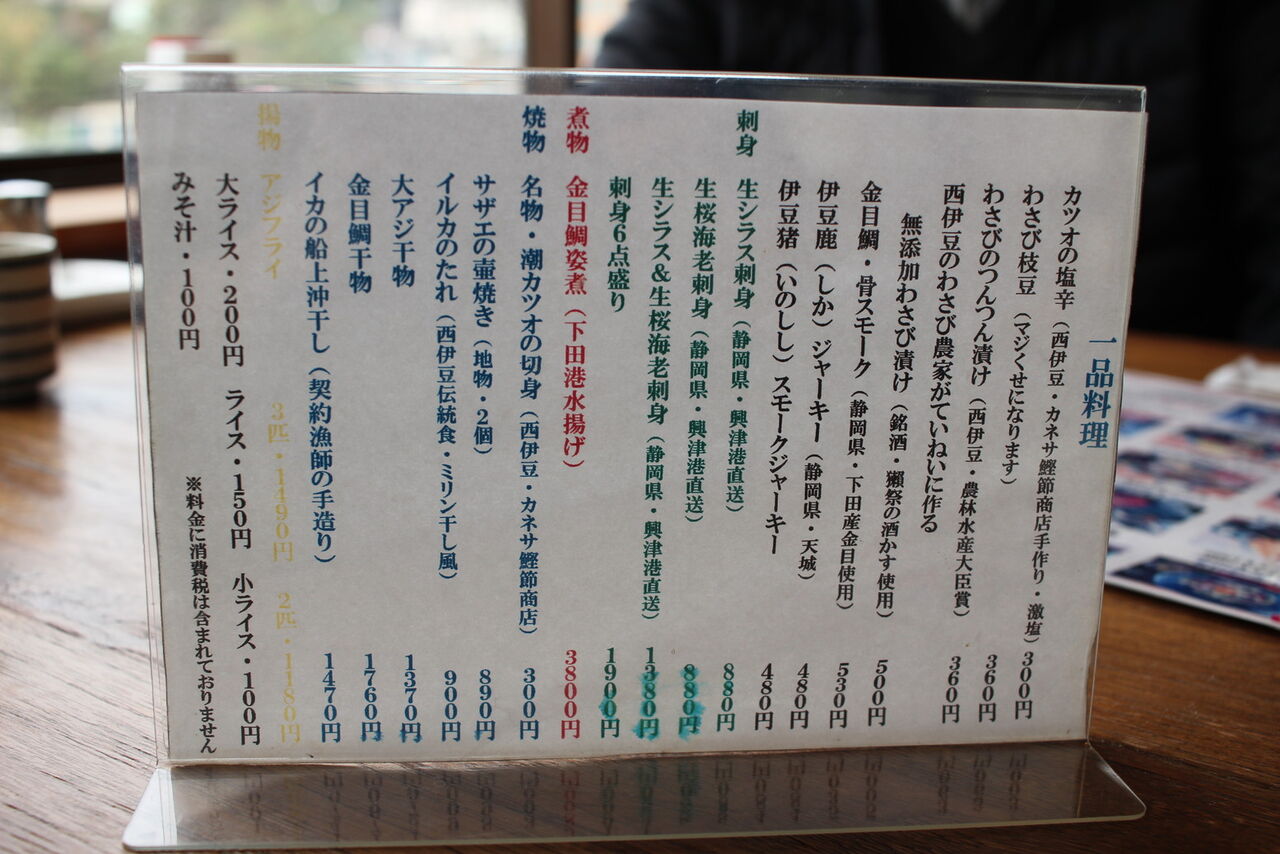 一品料理
カツオの塩辛（西伊豆・カネサ鰹節商店手作り・激塩）300円
わさび枝豆（マジくせになります）360円
わさびのつんつん漬け（西伊豆・農林水産大臣賞）360円
西伊豆のわさび農家がていねいに作る
無添加わさび漬け（銘酒・獺祭の酒かす使用）500円
金目鯛・骨スモーク（静岡県・下田産金目使用）530円
伊豆鹿（しか）ジャーキー（静岡県・天城）480円
伊豆猪（いのしし）スモークジャーキー 480円
刺身 生シラス刺身（静岡県・興津港直送）880円
生桜海老刺身（静岡県・興津港直送）880円
生シラス＆生桜海老刺身（静岡県・興津港直送）1380円
刺身6点盛り 1900円
煮物 金目鯛姿煮（下田港水揚げ）3800円
焼物 名物・潮カツオの切身（西伊豆・カネサ鰹節商店）300円
サザエの壷焼き（地物・2個）890円
イルカのたれ（西伊豆伝統食・ミリン干し風）900円
大アジ干物 1370円
金目鯛干物 1760円
イカの船上沖干し（契約漁師の手造り）1470円
揚物 アジフライ 3匹・1490円 2匹・1180円
大ライス・200円 ライス・150円 小ライス・100円
みそ汁・100円
※料金に消費税は含まれておりません